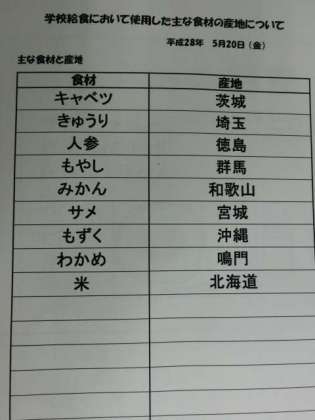 学校給食において使用した主な食材の産地について
平成28年 5月20日（金）
主な食材と産地
食材 産地
キャベツ 茨城
きゅうり 埼玉
人参 徳島
もやし 群馬
みかん 和歌山
サメ 宮城
もずく 沖縄
わかめ 鳴門
米 北海道